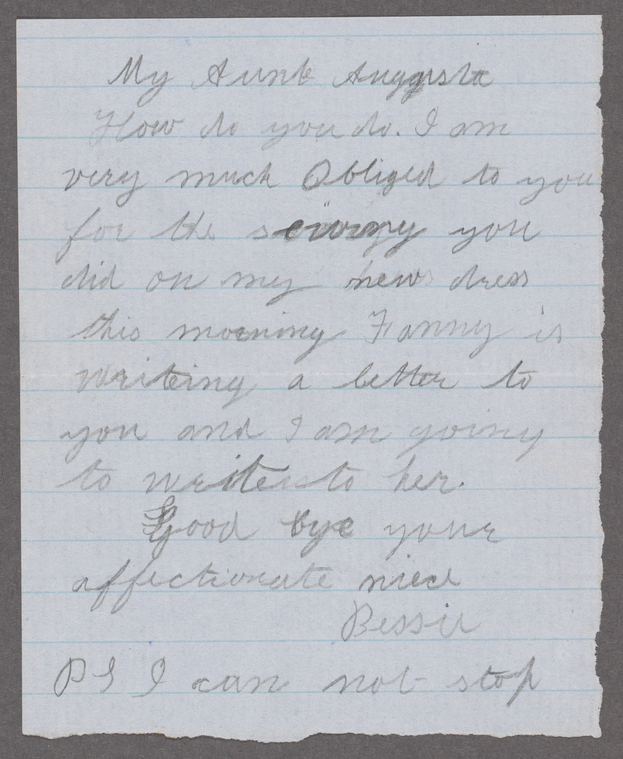 My Aunt Auggusta
How do you do. I am
very much Obliged to you
for the you
did on my new dress
this morning Fanny is
writing a letter to
you and I am going
to write to her.
Good bye your
affectionate niece
Bessie
PS I can not stop